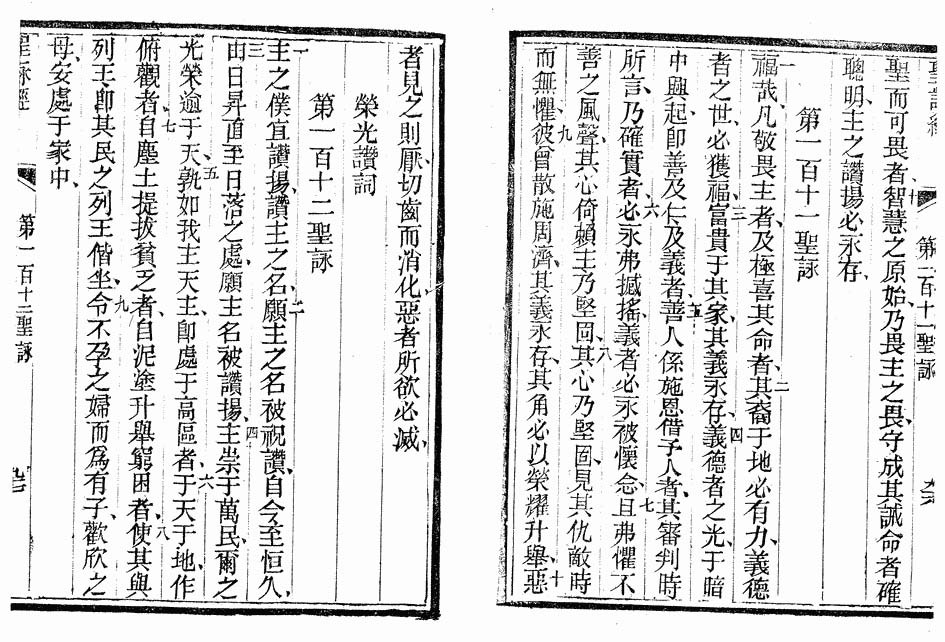 聖詠經
第一百十一聖詠
十
聖而可畏者智慧之原始、乃畏主之畏、守成其誡命者確
聰明、主之讚揚必永存、
第一百十一聖詠
一福哉、凡敬畏主者、及極喜其命者、二其裔于地必有力、義德
者之世、必獲福、三富貴于其家、其義永存、四義德者之光、于暗
中興起、卽善及仁及義者、五善人係施恩借予人者、其審判時
所言、乃確實者、六必永弗撼搖、義者必永被懷念、七且弗懼不
善之風聲、其心倚賴主、乃堅固、八其心乃堅固、見其仇敵時
而無懼、九彼曾散施周濟、其義永存、其角必以榮耀升舉、十惡
者見之則厭、切齒而消化、惡者所欲必滅、
榮光讚詞
第一百十二聖詠
一主之僕宜讚揚、讚主之名、二願主之名被祝讚、自今至恒久、
三由日昇直至日落之處、願主名被讚揚、四主崇于萬民、爾之
光榮逾于天、五孰如我主天主、卽處于高區者、六于天于地、作
俯觀者、七自塵土提拔貧乏者、自泥塗升舉窮困者、八使其與
列王、卽其民之列王偕坐、九令不孕之婦而爲有子歡欣之
母、安處于家中、
聖詠經
第一百十二聖詠